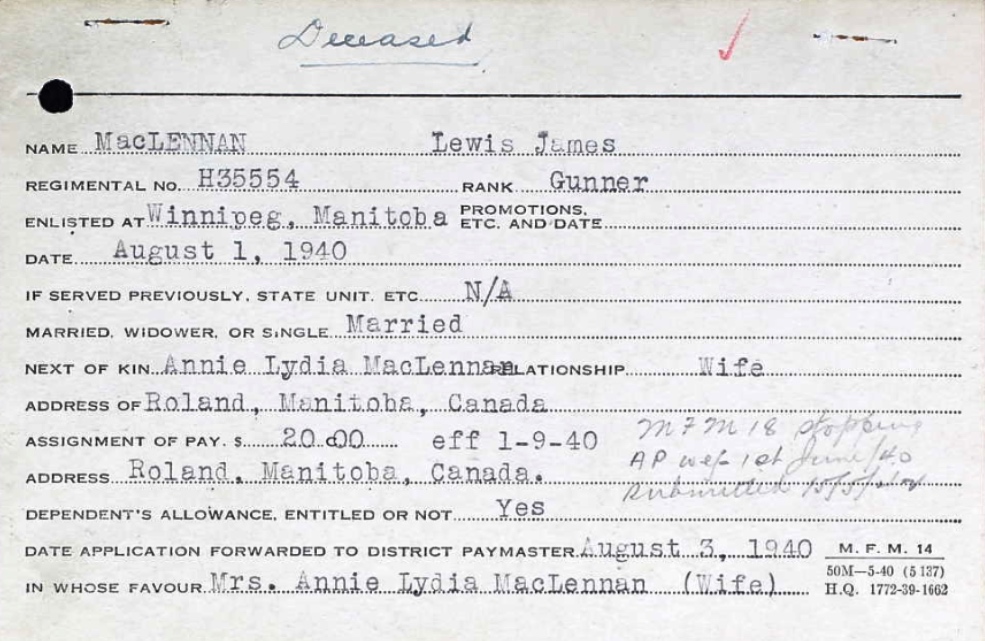 Deceased
NAME MacLENNAN Lewis James
REGIMENTAL NO. H35554 RANK Gunner
ENLISTED AT Winnipeg, Manitoba PROMOTIONS, ETC. AND DATE
DATE August 1, 1940
IF SERVED PREVIOUSLY, STATE UNIT. ETC. N/A
MARRIED, WIDOWER, OR SINGLE Married
NEXT OF KIN Annie Lydia MacLennan RELATIONSHIP Wife
ADDRESS OF Roland, Manitoba, Canada
ASSIGNMENT OF PAY. $ 20.00 eff 1-9-40
MFM 18 stopping
ADDRESS Roland, Manitoba, Canada.
AP wef 1st June/40
submitted 15/5/
DEPENDENT'S ALLOWANCE, ENTITLED OR NOT Yes
DATE APPLICATION FORWARDED TO DISTRICT PAYMASTER August 3, 1940
IN WHOSE FAVOUR Mrs. Annie Lydia MacLennan (Wife)
M. F. M. 14
50M—5-40 (5137)
H.Q. 1772-39-1662